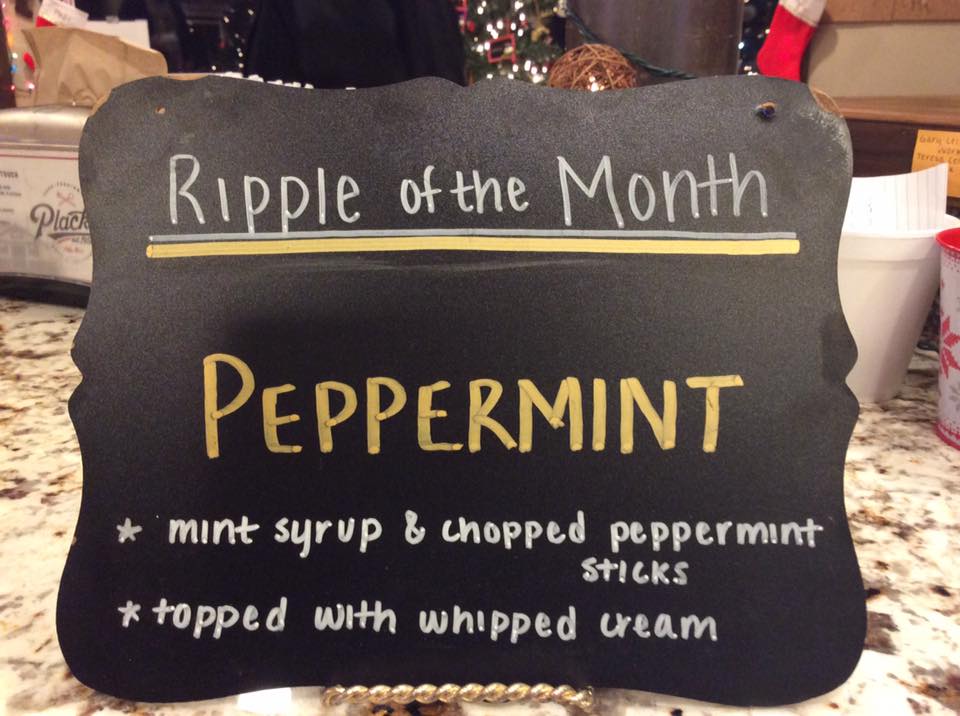 Ripple of the Month
PEPPERMINT
* mint syrup & chopped peppermint
sticks
* topped with whipped cream
Plack